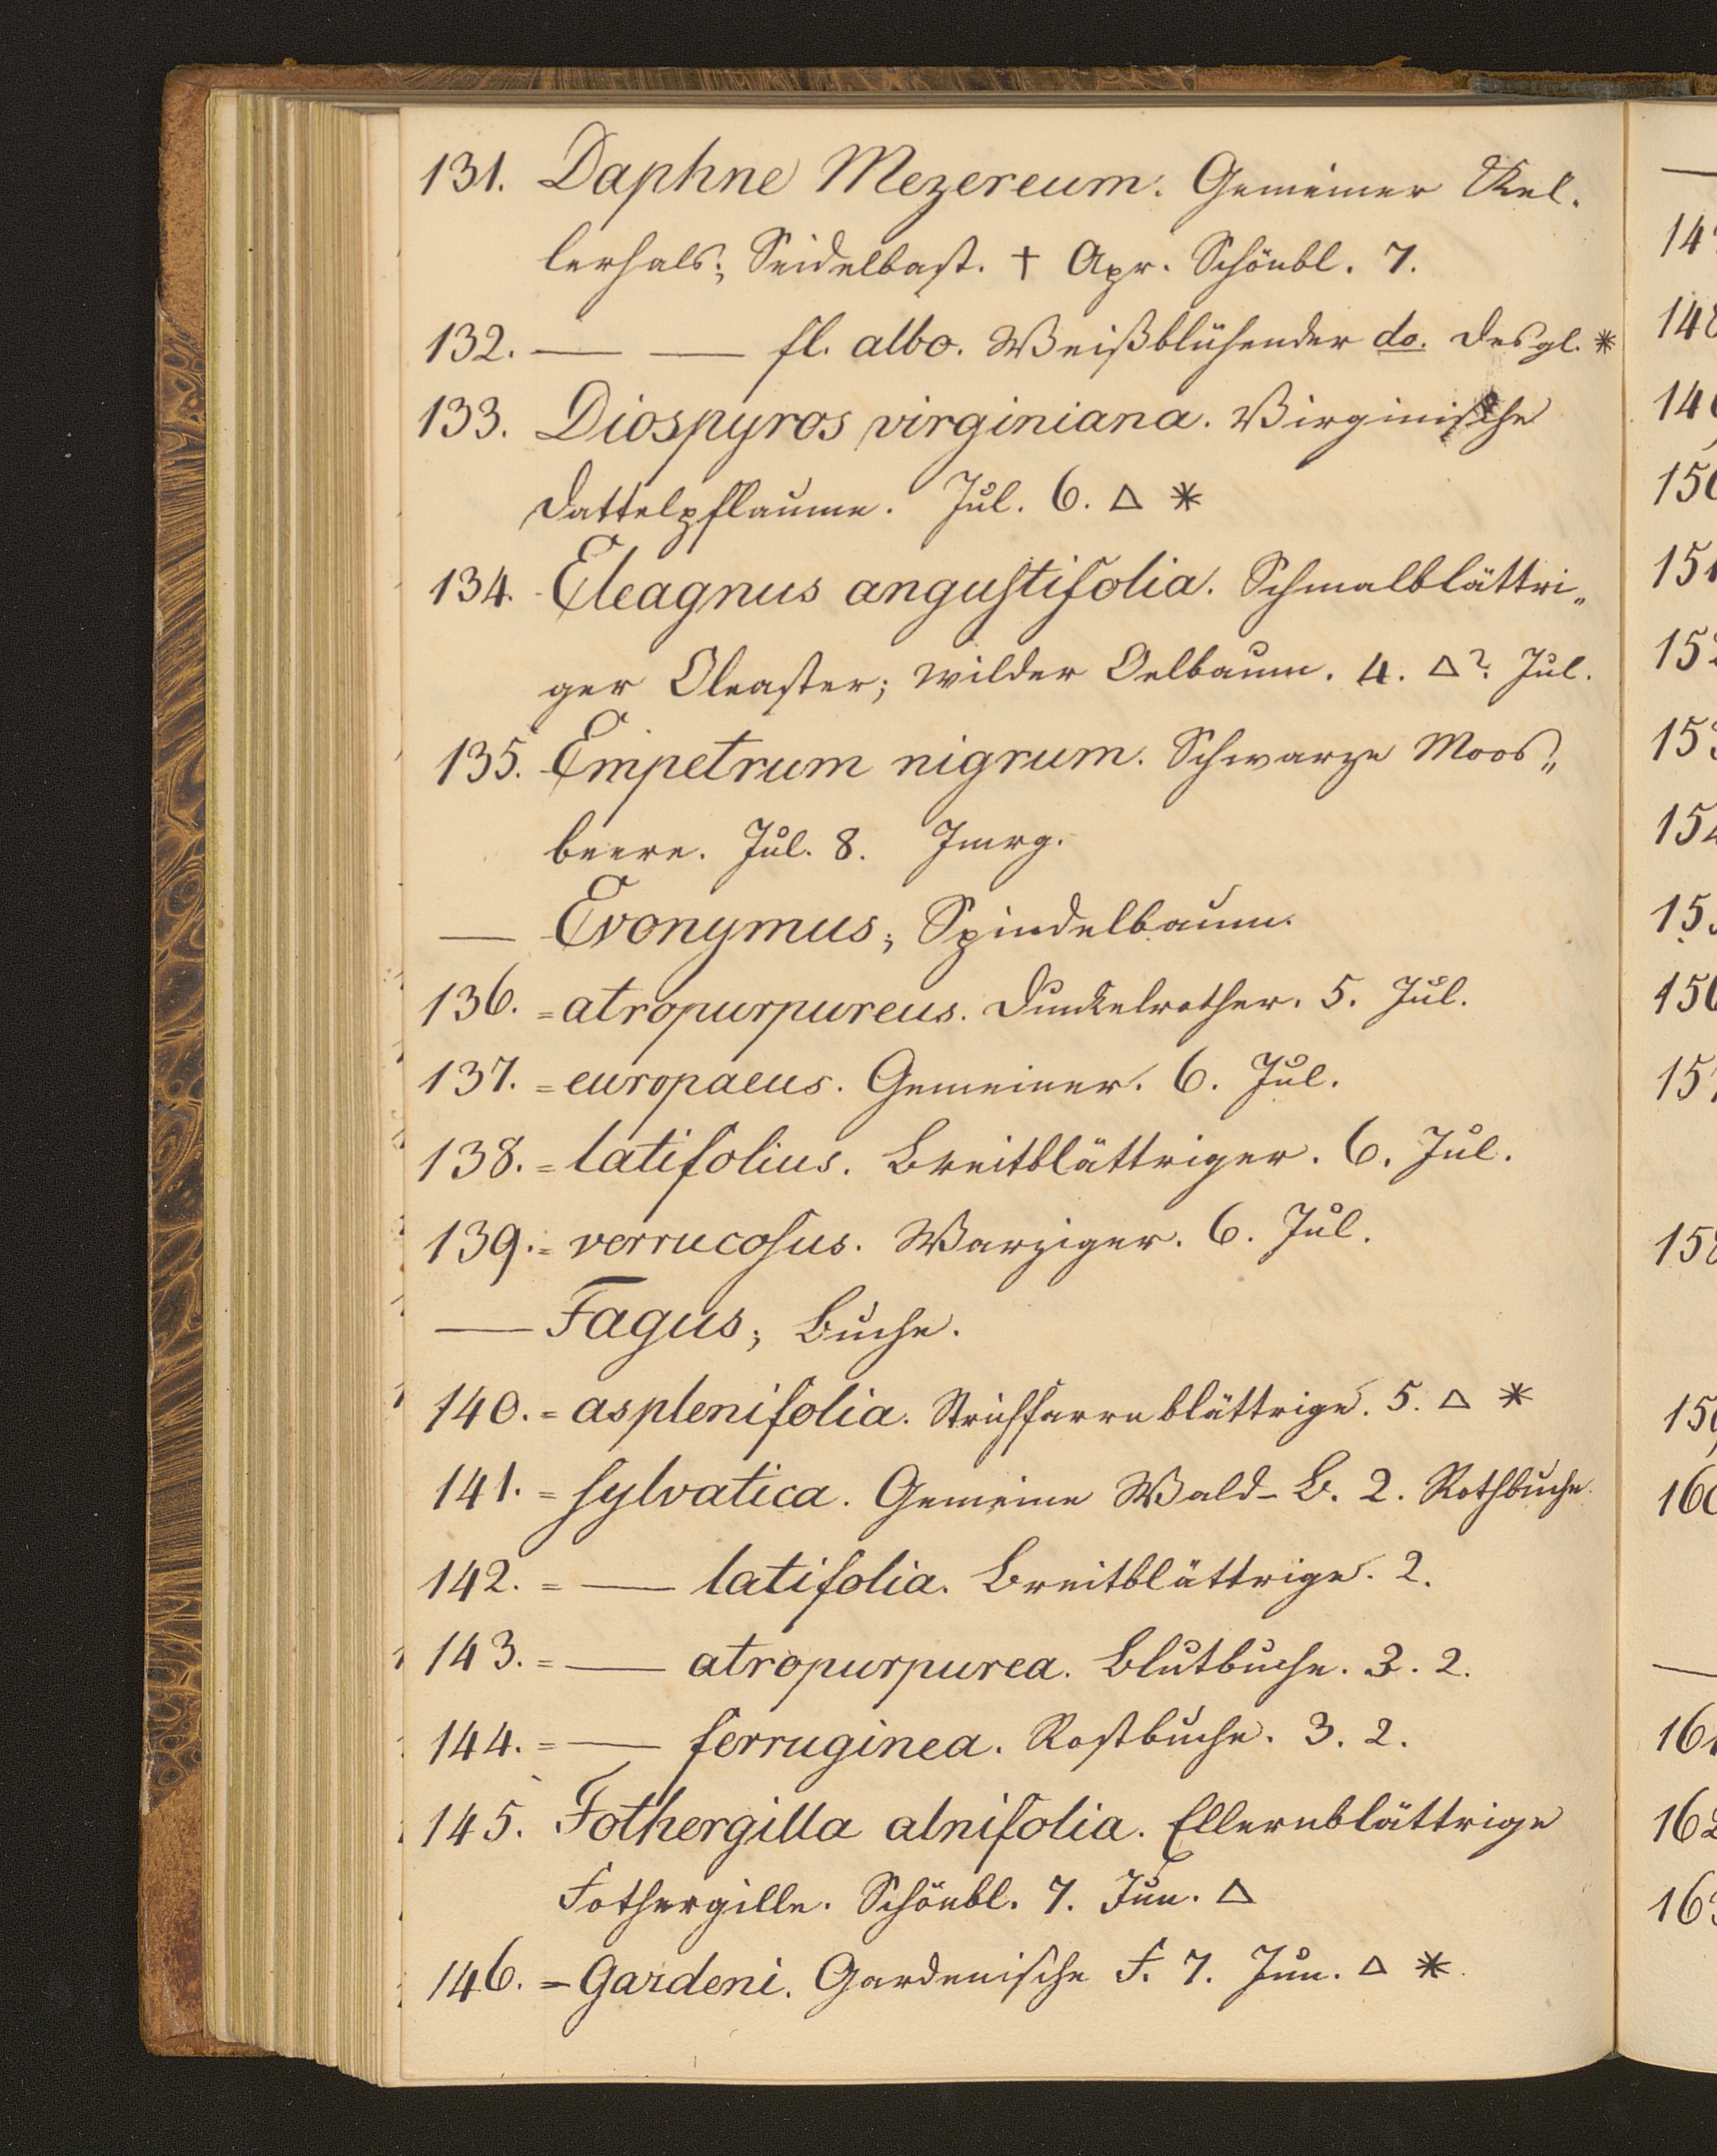 131. Daphne Mezereum. Gemeiner Kel-
lerhals; Seidelbast. † Apr. Schönbl. 7.
132. — — fl. albo. Weißblühender do. desgl. *
133. Diospyros virginiana. Virginische
Dattelpflaume. Jul. 6. △ *
134. Eleagnus angustifolia. Schmalblättri„
ger Oleaster; wilder Oelbaum. 4. △? Jul.
135. Empetrum nigrum. Schwarze Moos„
beere. Jul. 8. Jmrg.
— Evonymus; Spindelbaum.
136. = atropurpureus. Dunkelrother. 5. Jul.
137. = europaeus. Gemeiner. 6. Jul.
138. = latifolius. Breitblättriger. 6. Jul.
139. = verrucosus. Warziger. 6. Jul.
— Fagus; Buche.
140. = asplenifolia. Strichfarrnblättrige. 5. △ *
141. = sylvatica. Gemeine Wald-B. 2. Rothbuche.
142. = — latifolia. Breitblättrige. 2.
143. = — atropurpurea. Blutbuche. 3. 2.
144. = — ferruginea. Rostbuche. 3. 2.
145. Fothergilla alnifolia. Ellernblättrige
Fothergille. Schönbl. 7. Jun. △
146. = Gardeni. Gardenische F. 7. Jun. △ *